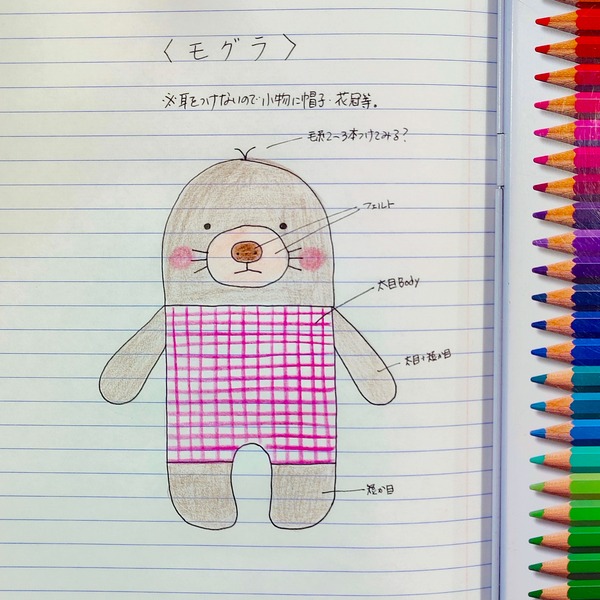 〈モグラ〉
※耳をつけないので小物に帽子・花冠等。
毛糸2〜3本つけてみる?
フェルト
太目Body
太目+短か目
短か目